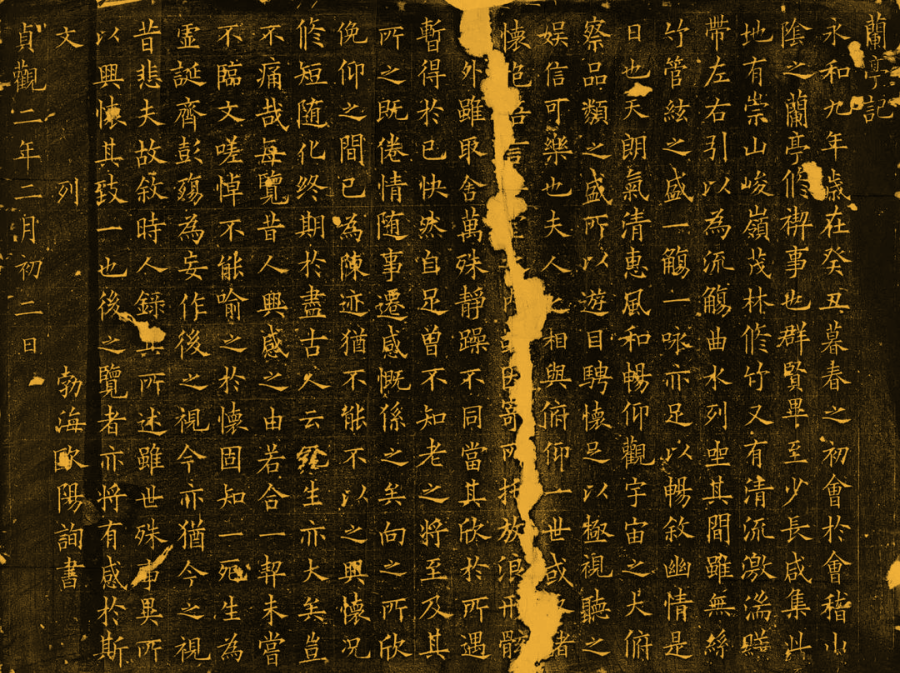 蘭亭記
永和九年歲在癸丑暮春之初會於會稽山
陰之蘭亭修禊事也群賢畢至少長咸集此
地有崇山峻嶺茂林修竹又有清流激湍
帶左右引以為流觴曲水列坐其間雖無絲
竹管絃之盛一觴一咏亦足以暢敘幽情是
日也天朗氣清惠風和暢仰觀宇宙之大俯
察品類之盛所以遊目騁懷足以極視聽之
娛信可樂也夫人之相與俯仰一世或諸
懷言因寄所托放浪形骸
外雖取舍萬殊靜躁不同當其欣於所遇
暫得於己快然自足曾不知老之將至及其
所之既倦情隨事遷感慨係之矣向之所欣
俛仰之間已為陳迹猶不能不以之興懷况
修短隨化終期於盡古人云死生亦大矣豈
不痛哉每覽昔人興感之由若合一契未嘗
不臨文嗟悼不能喻之於懷固知一死生為
虛誕齊彭殤為妄作後之視今亦猶今之視
昔悲夫故敘時人録其所述雖世殊事異所
以興懷其致一也後之覽者亦將有感於斯
文 列 勃海歐陽詢書
貞觀二年二月初二日